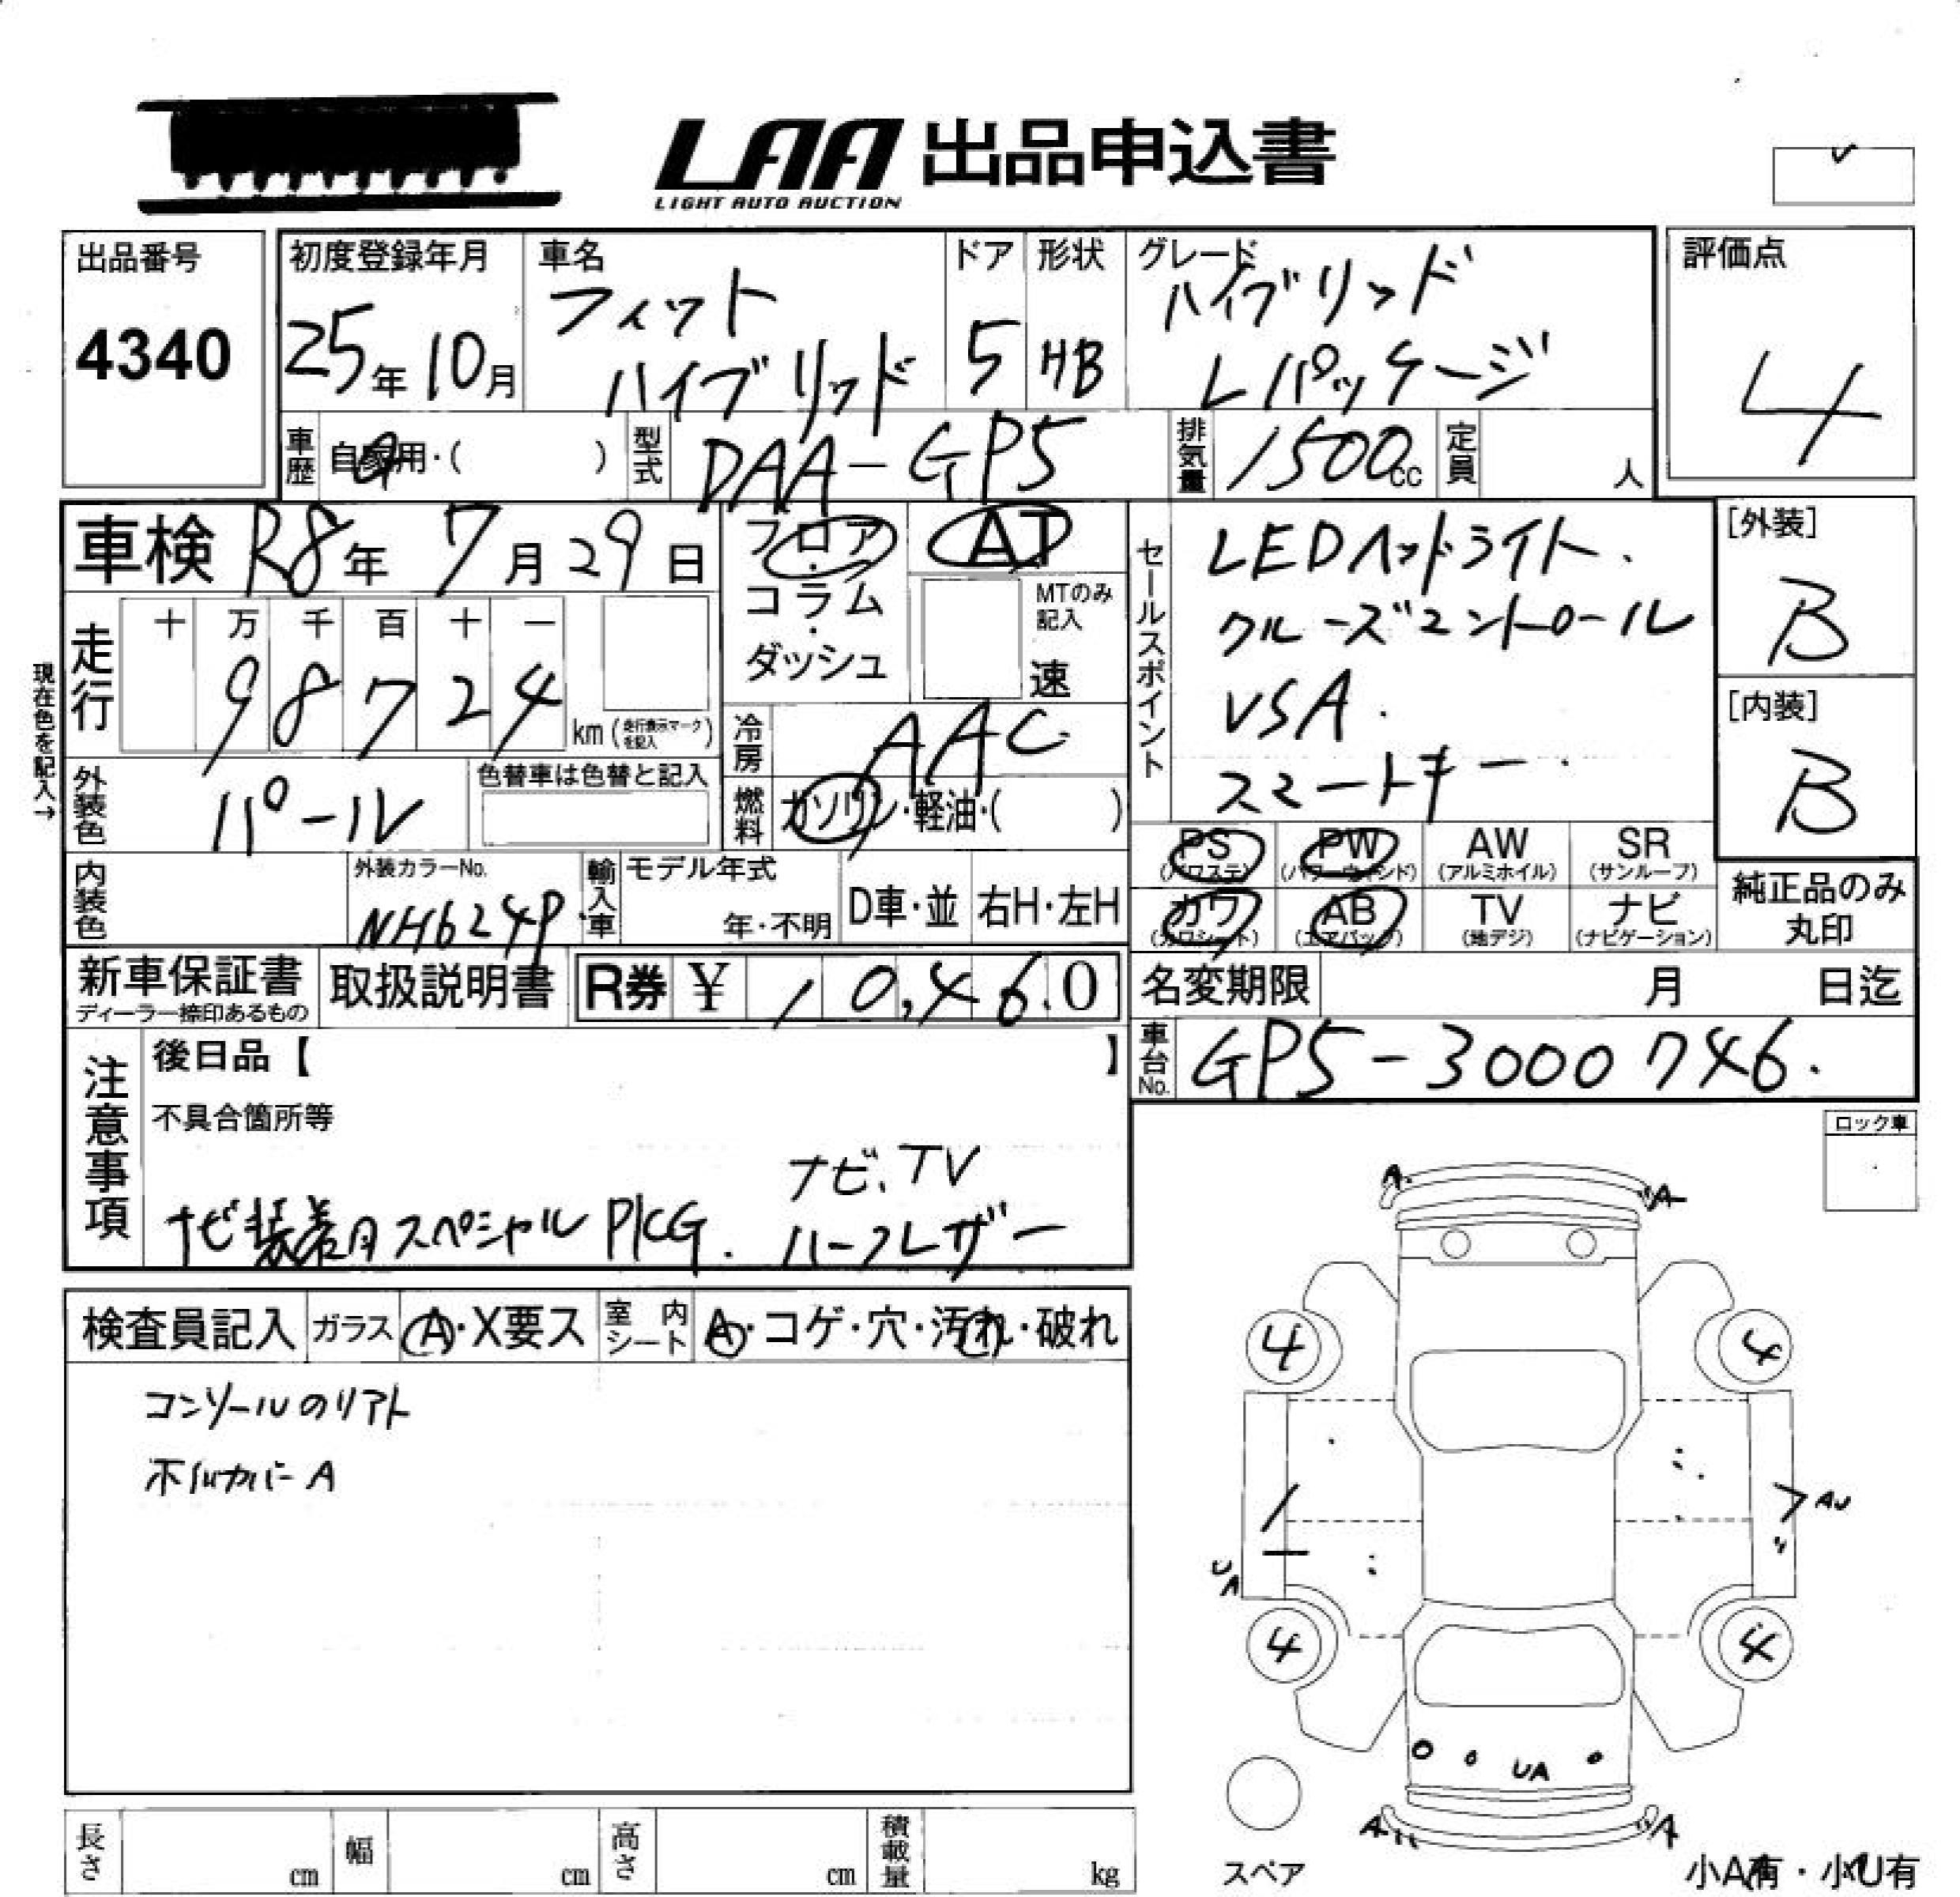 LAA 出品申込書
LIGHT AUTO AUCTION
出品番号
4340
初度登録年月
25年10月
車名
フィット
ハイブリッド
ドア
5
形状
HB
グレード
ハイブリッド
Lパッケージ
評価点
4
車歴
自家用・( )
型式
DAA-GP5
排気量
1500cc
定員
人
車検 R8年7月29日
フロア・
コラム・
ダッシュ
AT
MTのみ
記入
速
セールスポイント
LEDヘッドライト.
クルーズコントロール
VSA.
スマートキー.
[外装]
B
[内装]
B
現在色を記入→
走行
十 万 千 百 十 一
98724
km(走行表示マークを記入)
冷房
AAC
燃料
ガソリン・軽油・( )
外装色
パール
色替車は色替と記入
内装色
外装カラーNo.
NH624P
輸入車
モデル年式
年・不明
D車・並
右H・左H
PS
(パワステ)
PW
(パワーウィンド)
AW
(アルミホイル)
SR
(サンルーフ)
カワ
(カワシート)
AB
(エアバック)
TV
(地デジ)
ナビ
(ナビゲーション)
純正品のみ
丸印
新車保証書
ディーラー捺印あるもの
取扱説明書
R券 ¥ 10,460
名変期限 月 日迄
車台No.
GP5-3000746.
注意事項
後日品【 】
不具合箇所等
ナビ、TV
ナビ装着用スペシャルPKG. ハーフレザー
ロック車
検査員記入
ガラス
A・X要ス
室内シート
A・コゲ・穴・汚れ・破れ
コンソールのリアト
A
A
A
4
4
AU
UA
4
4
UA
A
A
スペア
小A有・小U有
長さ
cm
幅
cm
高さ
cm
積載量
kg